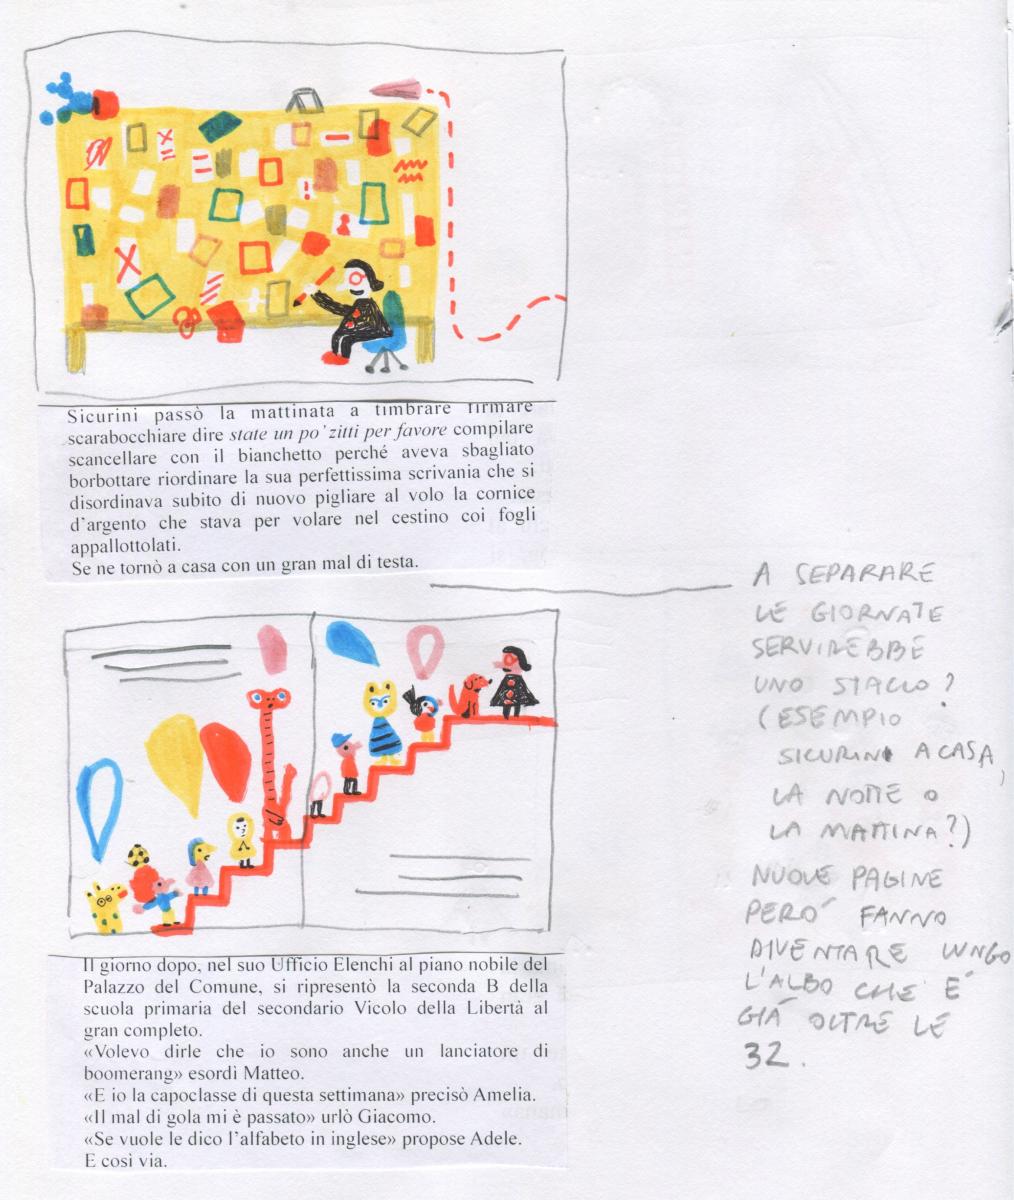 Sicurini passò la mattinata a timbrare firmare
scarabocchiare dire state un po’ zitti per favore compilare
scancellare con il bianchetto perché aveva sbagliato
borbottare riordinare la sua perfettissima scrivania che si
disordinava subito di nuovo pigliare al volo la cornice
d’argento che stava per volare nel cestino coi fogli
appallottolati.
Se ne tornò a casa con un gran mal di testa.
A SEPARARE
LE GIORNATE
SERVIREBBE
UNO STACCO?
(ESEMPIO
SICURINI A CASA,
LA NOTTE O
LA MATTINA?)
NUOVE PAGINE
PERÒ FANNO
DIVENTARE LUNGO
L'ALBO CHE È
GIÀ OLTRE LE
32.
Il giorno dopo, nel suo Ufficio Elenchi al piano nobile del
Palazzo del Comune, si ripresentò la seconda B della
scuola primaria del secondario Vicolo della Libertà al
gran completo.
«Volevo dirle che io sono anche un lanciatore di
boomerang» esordì Matteo.
«E io la capoclasse di questa settimana» precisò Amelia.
«Il mal di gola mi è passato» urlò Giacomo.
«Se vuole le dico l’alfabeto in inglese» propose Adele.
E così via.